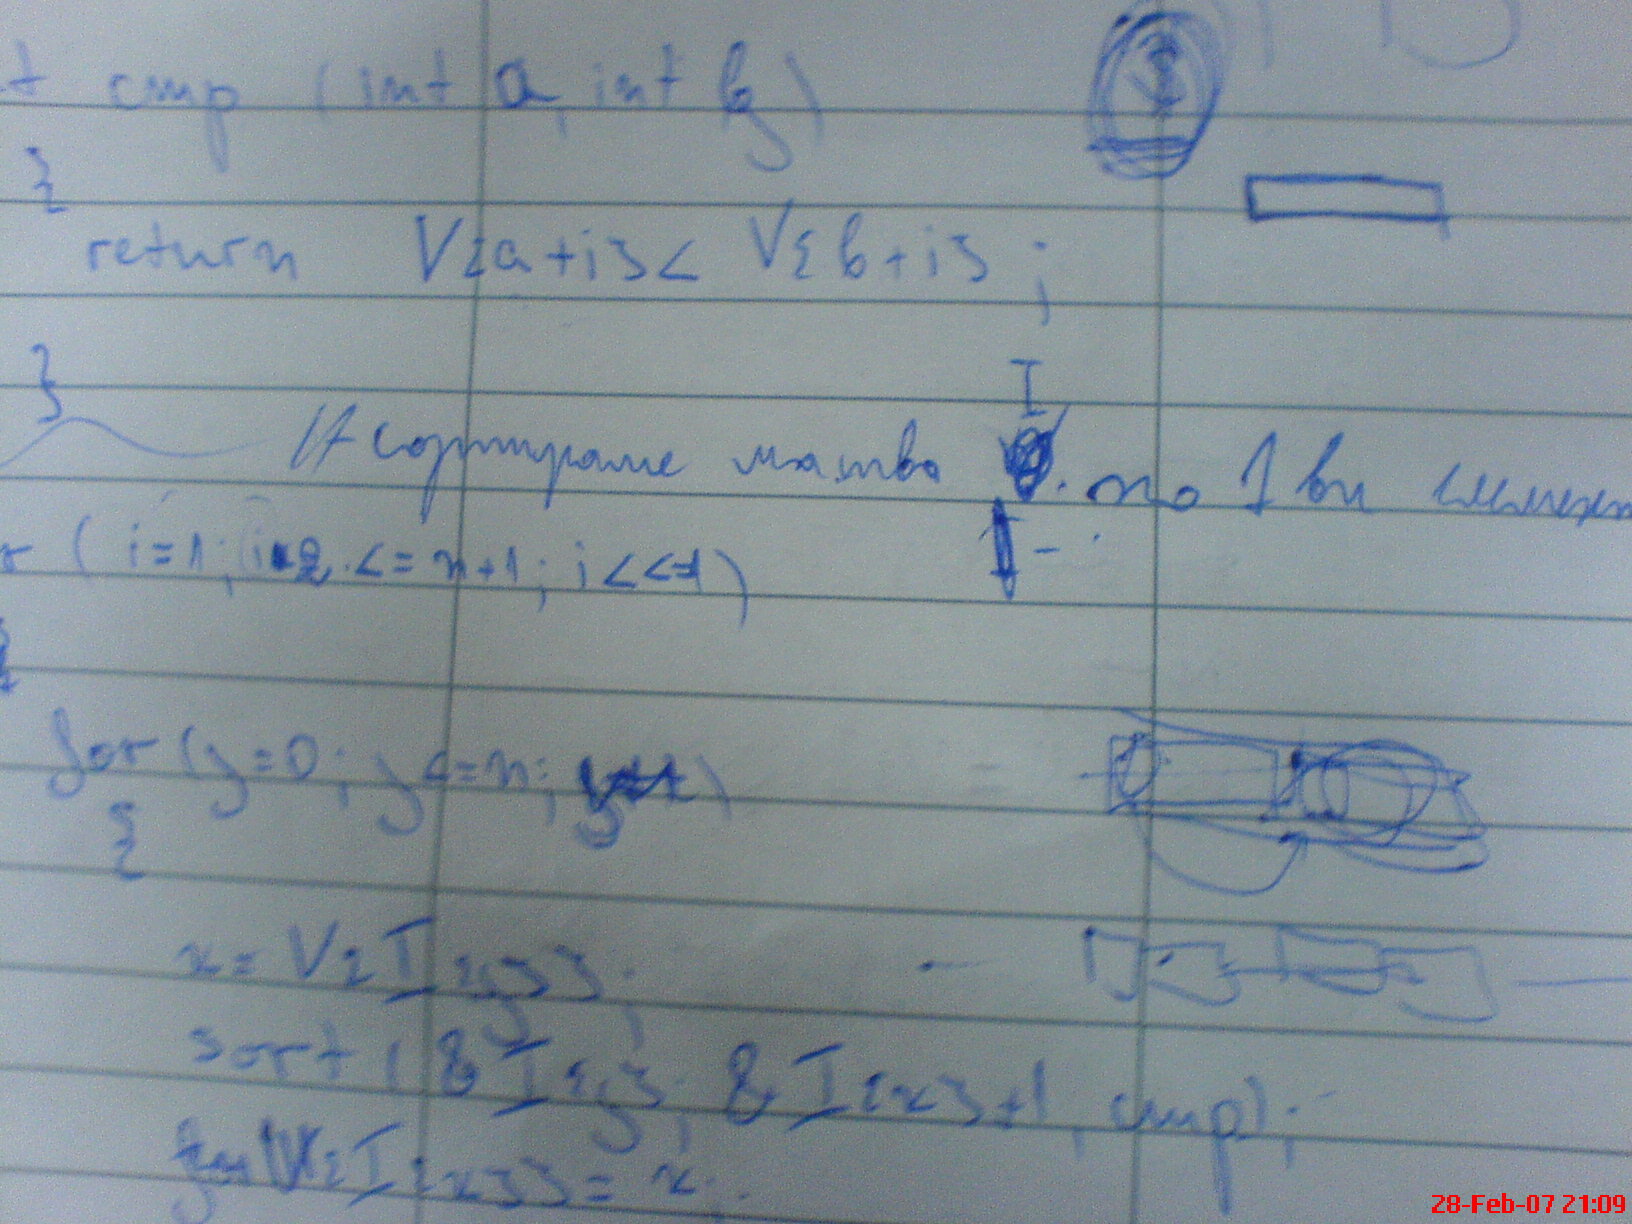 t cmp (int a, int b)
{
return V[a+i]< V[b+i];
}
// сортираме масива I по 1ви елемент
r (i=1; i <= n+1; i<<=1)
{
for (y=0; y<=n; )
{
x= V[I[y]];
sort (&I[y], &I[x]+1, cmp);
V[I[x]]= x
28-Feb-07 21:09